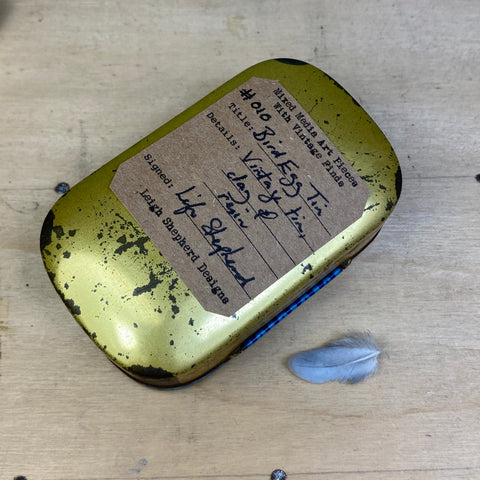 Mixed Media Art Pieces
With Vintage Finds
Title: #010 Bird Egg Tin
Details: Vintage tin,
clay &
resin
Signed: Leigh Shepherd
Leigh Shepherd Designs